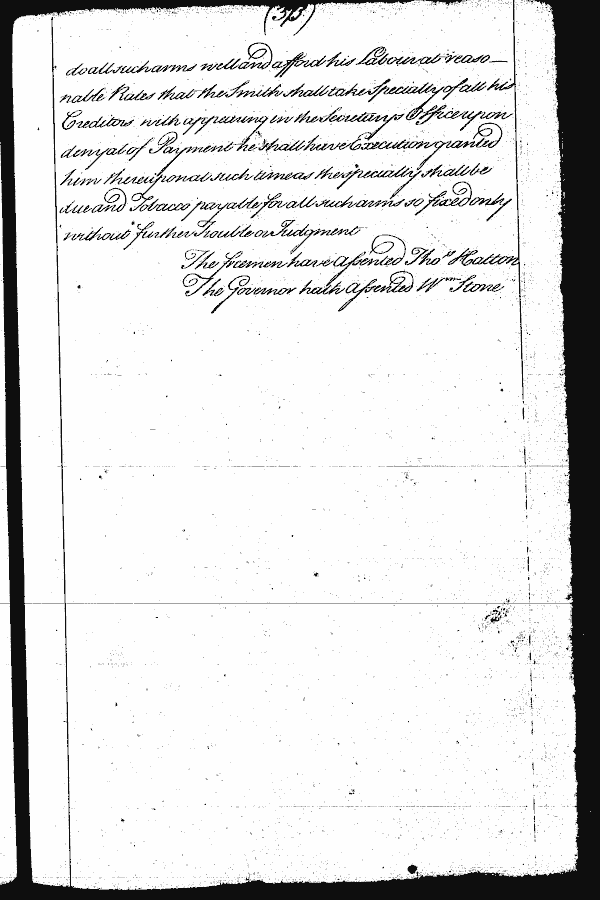 (375)
do all such arms well and afford his Labour at reaso—
nable Rates that the Smith shall take Specialty of all his
Creditors with appearing in the Secretarys Office upon
denyal of Payment he shall have Execution granted
him thereupon at such time as the specialty shall be
due and Tobacco payable for all such arms so fixed only
without further Trouble or Judgment
The freemen have assented Thos Hatton
The Governor hath assented Wm Stone